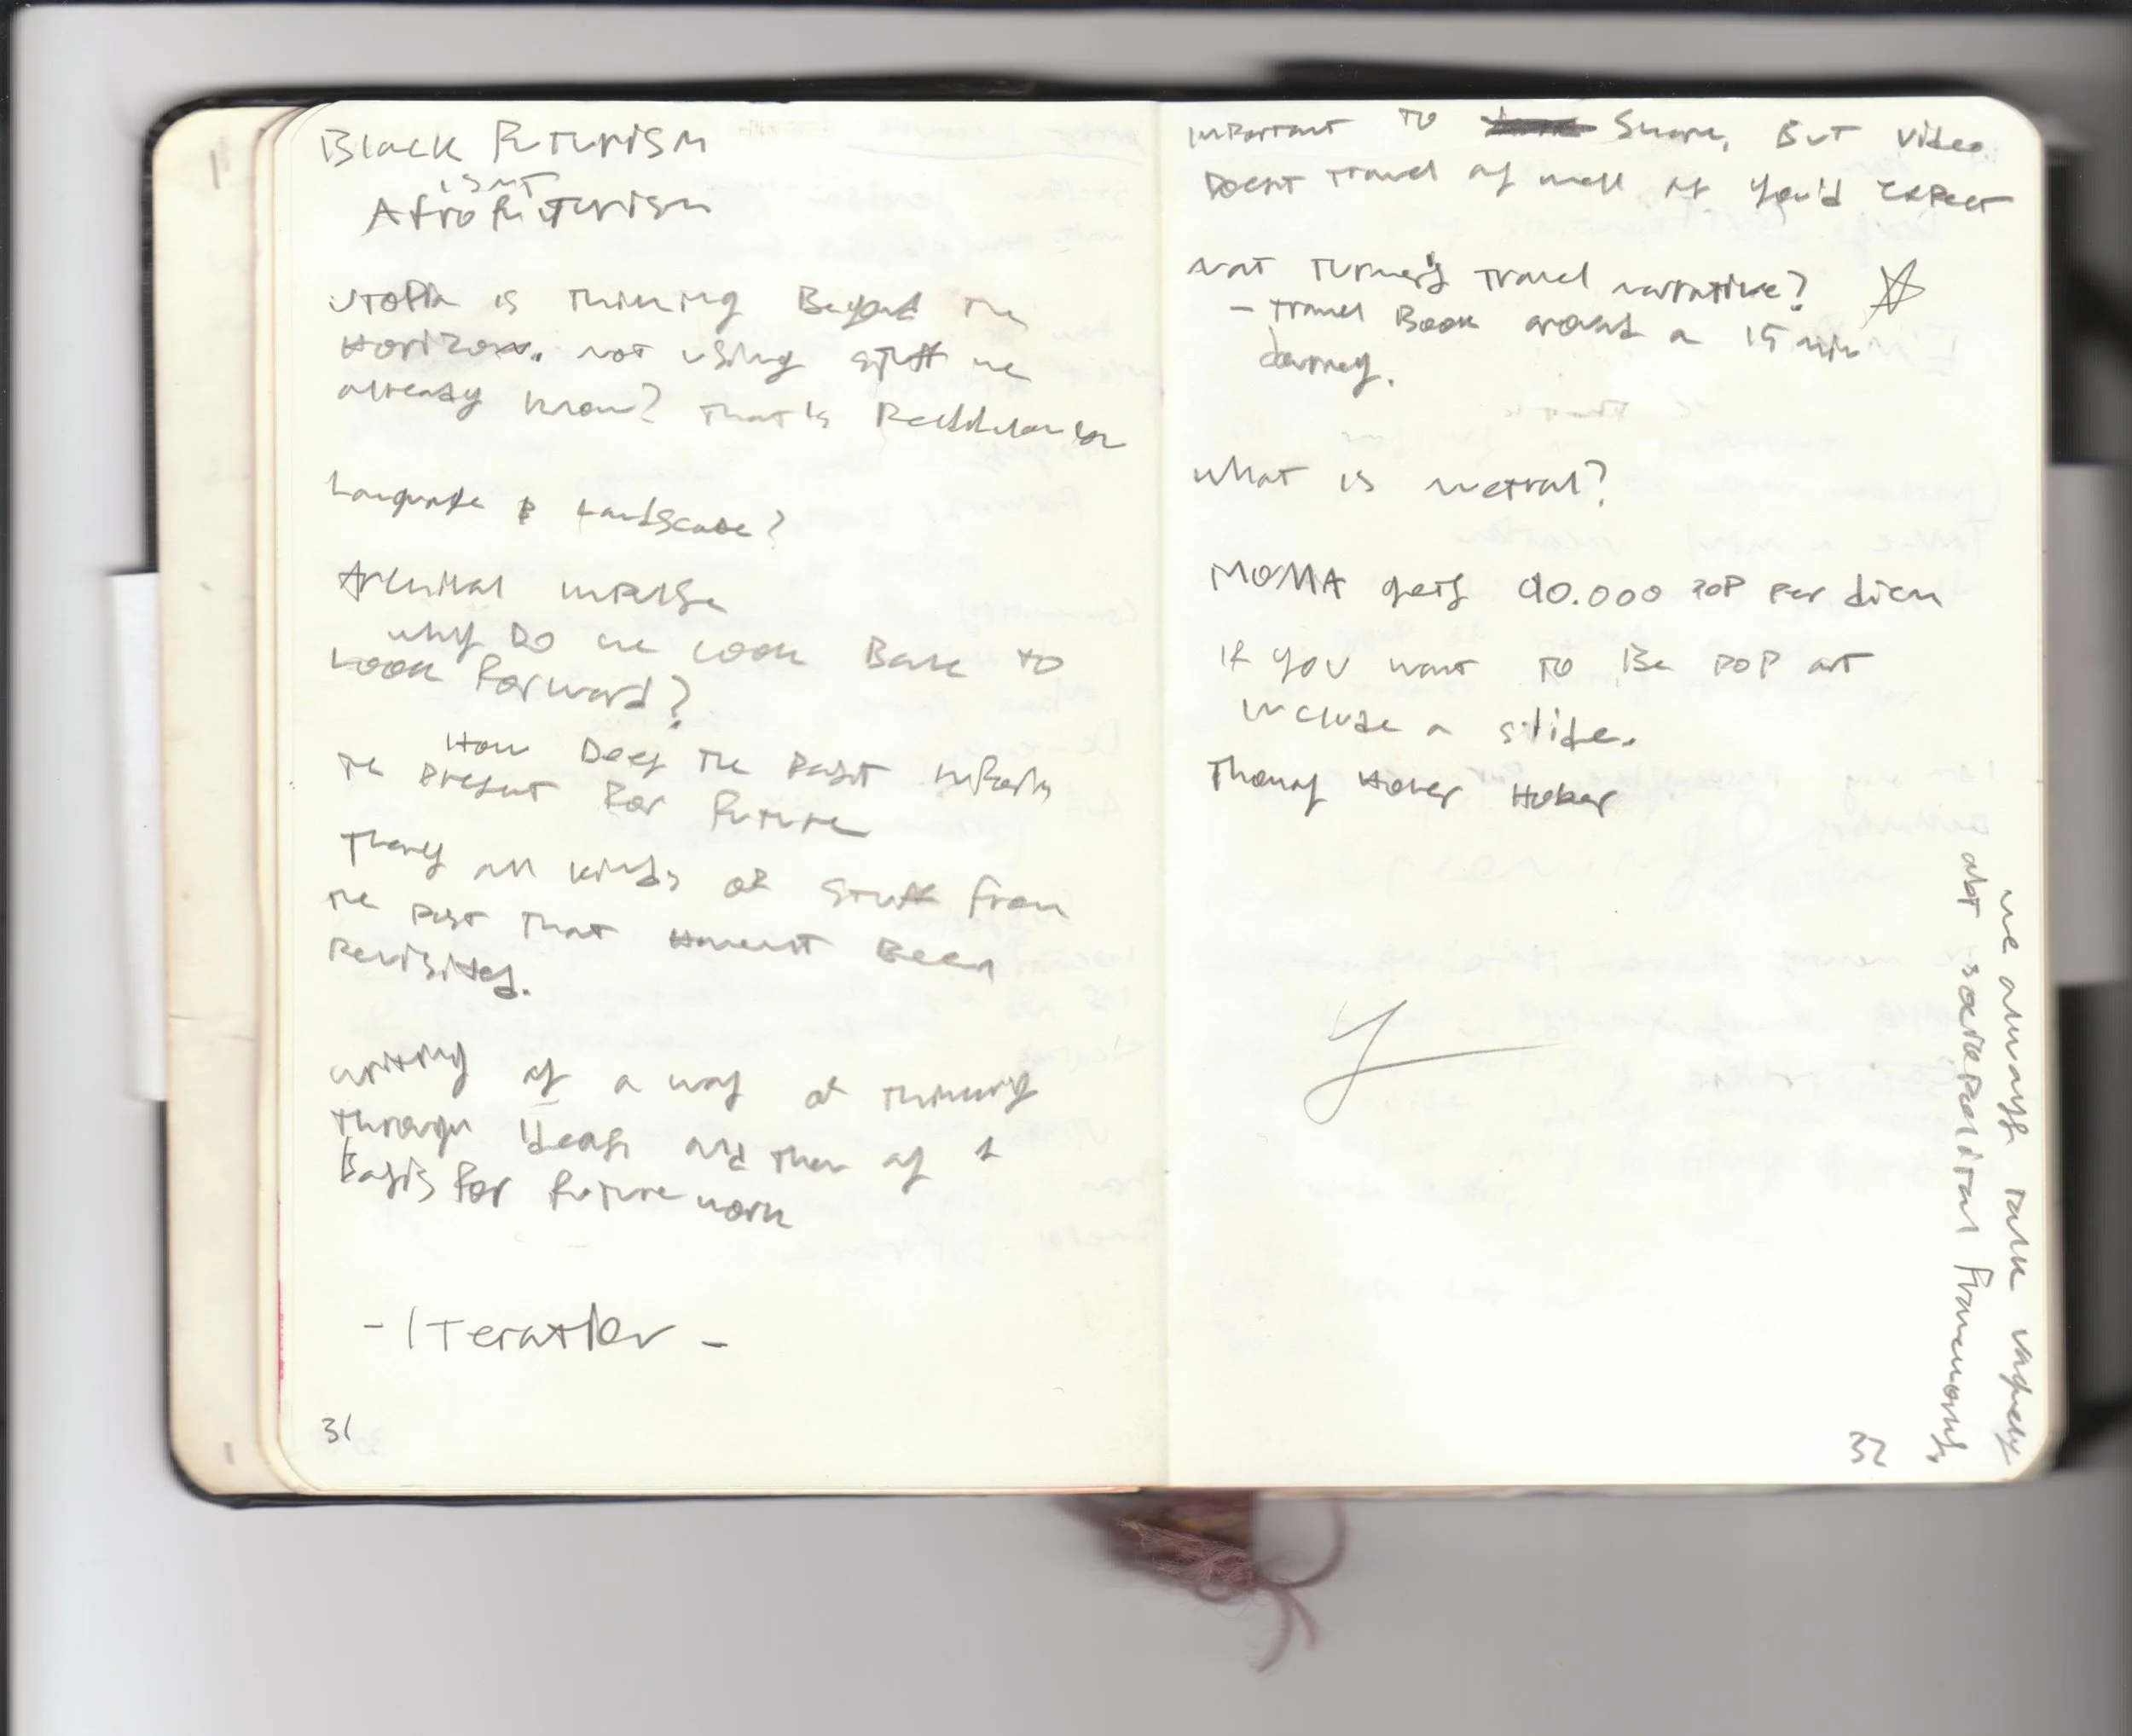 Black Futurism
isnt
Afro Futurism
Utopia is Thinking Beyond The
Horizon. not using stuff we
already know? That's
Language & Landscape?
Archival impulse
why Do we Look Back to
Look forward?
How Does The Past inform
The Present For Future
Theres all kinds of Stuff from
The Past That Havent Been
Revisited.
writing as a way of Thinking
through Ideas and then as a
Basis for future work
- Iteration -
31
important To Share, But Video
Doesnt Travel as well as you'd expect
Nat Turner's Travel narrative? ☆
- Travel Book around a 15 min
Journey.
what is netral?
MOMA gets 90.000 POP Per diem
if you want To Be POP art
include a slide.
Thomas Hover
we always talk vaguely
abt sociopolitical frameworks.
32